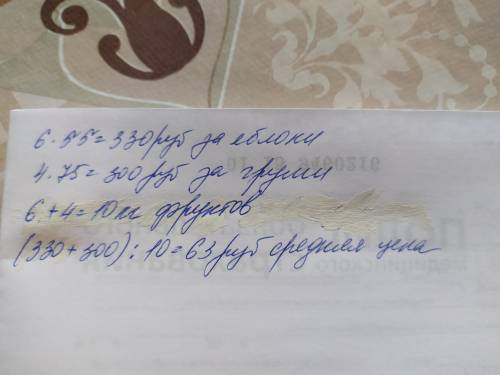 6·55=330руб за яблоки
4.75=300руб за груши
6+4=10кг фруктов
(330+300):10=63руб средняя цена